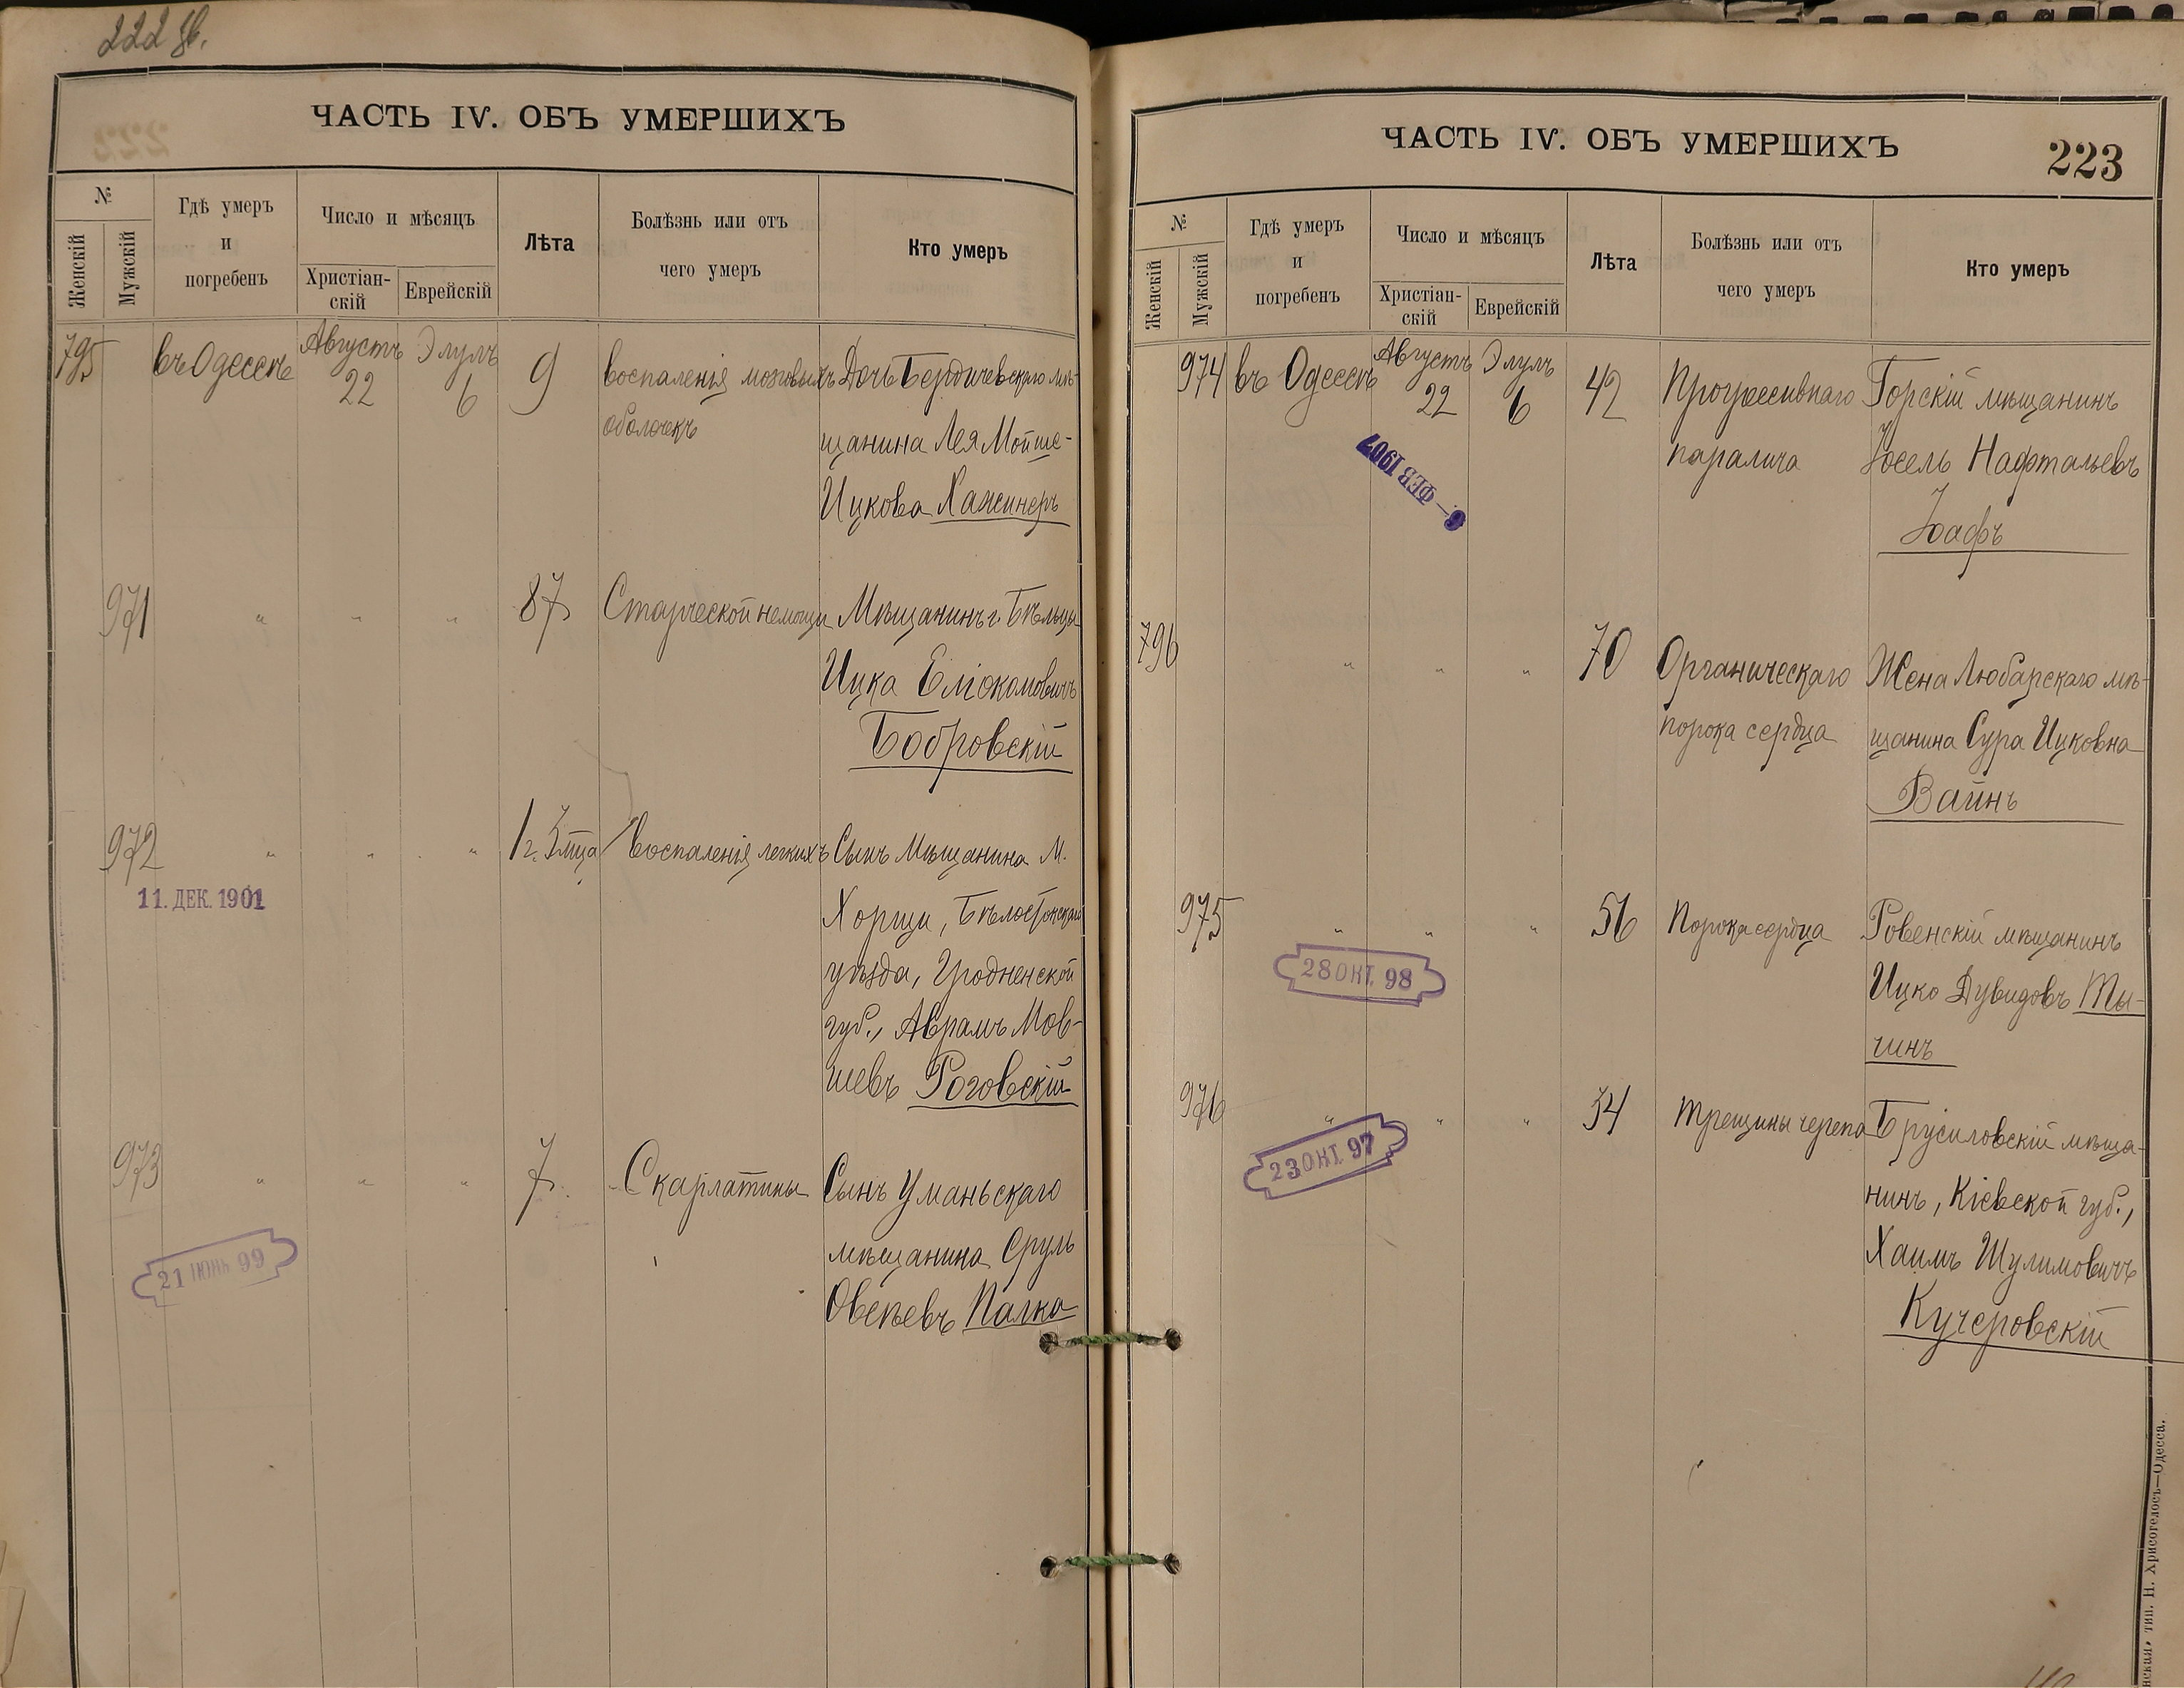 222 об.
ЧАСТЬ IV. ОБЪ УМЕРШИХЪ
№
Женскій
Мужскій
Гдѣ умеръ
и
погребенъ
Число и мѣсяцъ
Христіан-
скій
Еврейскій
Лѣта
Болѣзнь или отъ
чего умеръ
Кто умеръ
795
въ Одессѣ
Августъ
22
Элулъ
6
9
воспаленія мозговыхъ
оболочекъ
Дочь Бердичевскаго мѣ-
щанина Лея Мойше-
Ицкова
971
" " "
87
Старческой немощи
Мѣщанинъ г. Бѣльцы
Ицка
Бобровскій
972
" " "
1 г. 3 мца
Воспаленія легкихъ
Сынъ мѣщанина м.
Хорощи, Бѣлостокскаго
уѣзда, Гродненской
губ., Абрамъ Мов-
шевъ Роговскій
11. ДЕК. 1901
973
" " "
7
Скарлатины
Сынъ Уманьскаго
мѣщанина Сруль
Овсѣевъ Палка
21 ІЮНЬ 99
ЧАСТЬ IV. ОБЪ УМЕРШИХЪ
223
№
Женскій
Мужскій
Гдѣ умеръ
и
погребенъ
Число и мѣсяцъ
Христіан-
скій
Еврейскій
Лѣта
Болѣзнь или отъ
чего умеръ
Кто умеръ
974
въ Одессѣ
Августъ
22
Элулъ
6
42
Прогрессивнаго
паралича
Горскій мѣщанинъ
Іосель Нафтальевъ
Іоафъ
6 - ФЕВ 1907
796
" " "
70
Органическаго
порока сердца
Жена Любарскаго мѣ-
щанина Сура Ицковна
Вайнъ
975
" " "
56
Порока сердца
Ровенскій мѣщанинъ
Ицко Дувидовъ Ты-
чинъ
28 ОКТ. 98
976
" " "
34
Трещины черепа
Брусиловскій мѣща-
нинъ, Кіевской губ.,
Хаимъ Шулимовичъ
Кучеровскій
23 ОКТ. 97
тип. Н. Хрисогелосъ—Одесса.